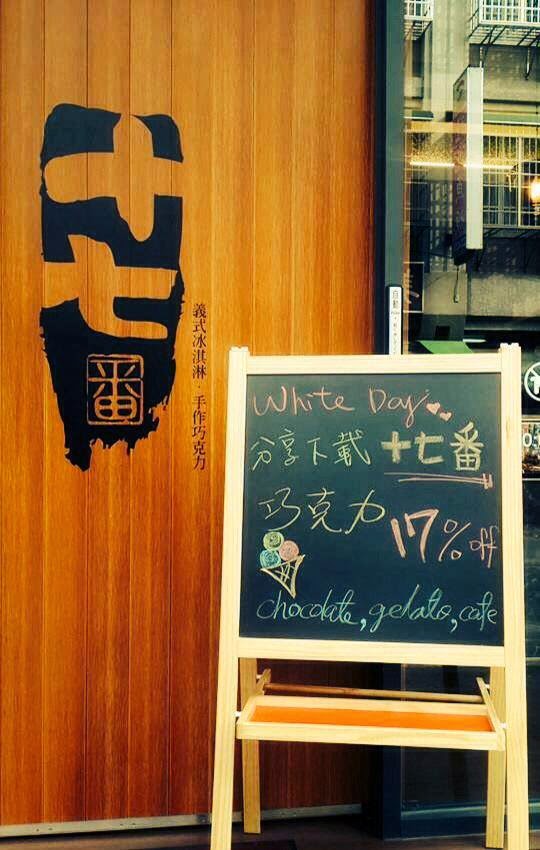 十七番
義式冰淇淋·手作巧克力
自動
White Day
分享下載 十七番
巧克力 17% off
chocolate, gelato, cafe